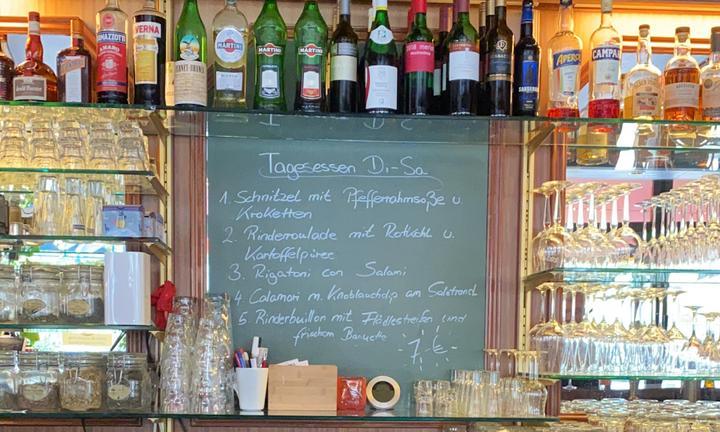 RAMAZZOTTI
AMARO
VERNA
FERNET-BRANCA
MARTINI
MARTINI
MARTINI
APEROL
CAMPARI
Tagesessen Di-Sa
1. Schnitzel mit Pfefferrahmsoße u.
Kroketten
2. Rinderroulade mit Rotkohl u.
Kartoffelpüree
3. Rigatoni con Salami
4 Calamari m. Knoblauchdip am Salatrand
5. Rinderbuillon mit Flädlestreifen und
frischem
7,- €